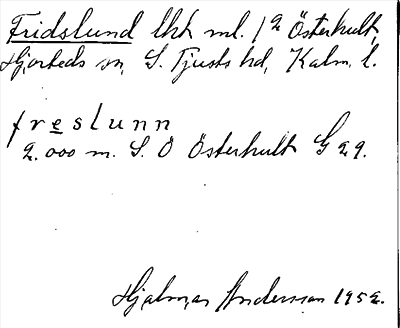 Fridslund lht ml. 1² Österhult,
Hjorteds sn, S. Tjusts hd, Kalm. l.
freslunn
2.000 m. S. Ö Österhult G 29.
Hjalmar Andersson 1952.